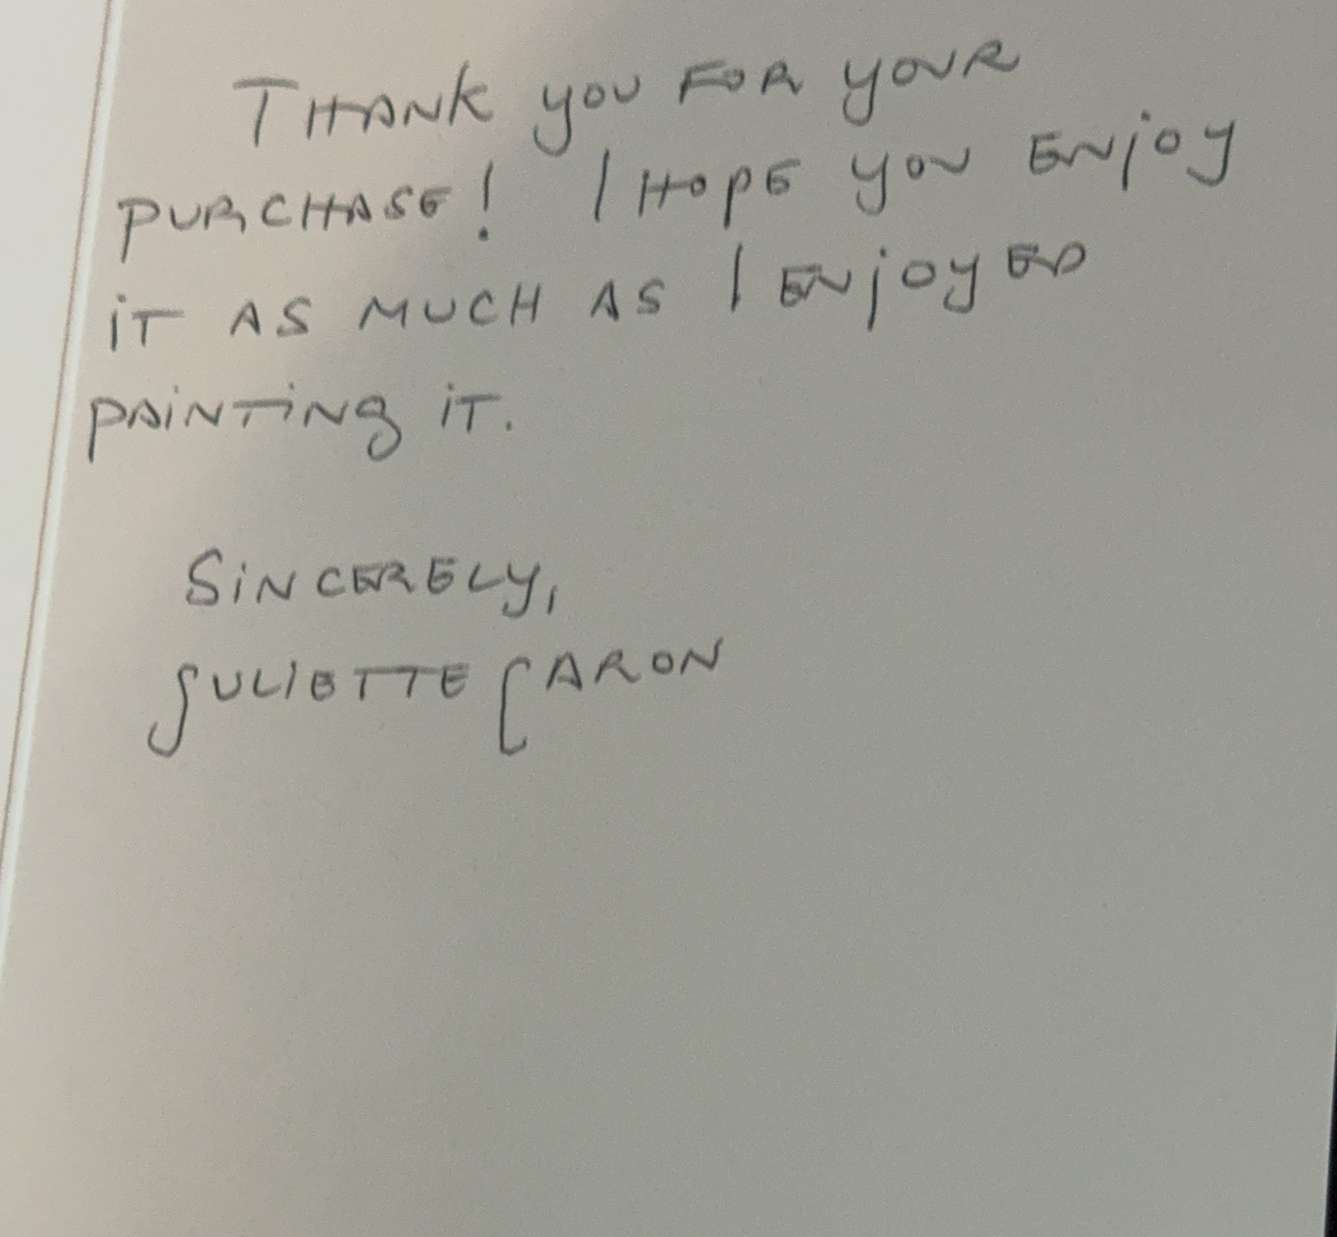 THANK YOU FOR YOUR
PURCHASE! I HOPE YOU ENJOY
IT AS MUCH AS I ENJOYED
PAINTING IT.
SINCERELY,
JULIETTE CARON